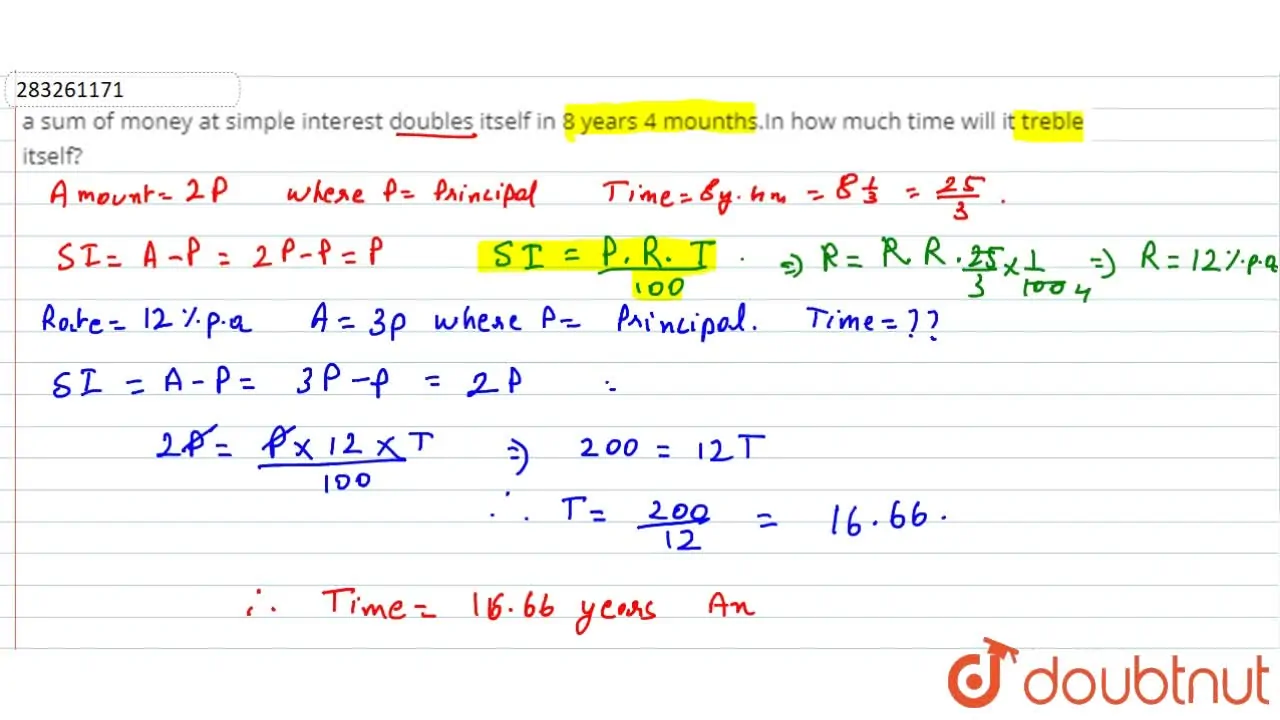 283261171
a sum of money at simple interest doubles itself in 8 years 4 mounths.In how much time will it treble
itself?
Amount = 2P where P = Principal Time = 8y. 4m = 8 1/3 = 25/3 .
SI = A - P = 2P - P = P SI = P. R. T / 100 . => R = R R . 25/3 x 1/100 4 => R = 12 %.p.a
Rate = 12 %.p.a A = 3p where P = Principal. Time = ??
SI = A - P = 3P - P = 2P :
2P = P x 12 x T / 100 => 200 = 12T
∴ T = 200/12 = 16.66.
∴ Time = 16.66 years An
doubtnut